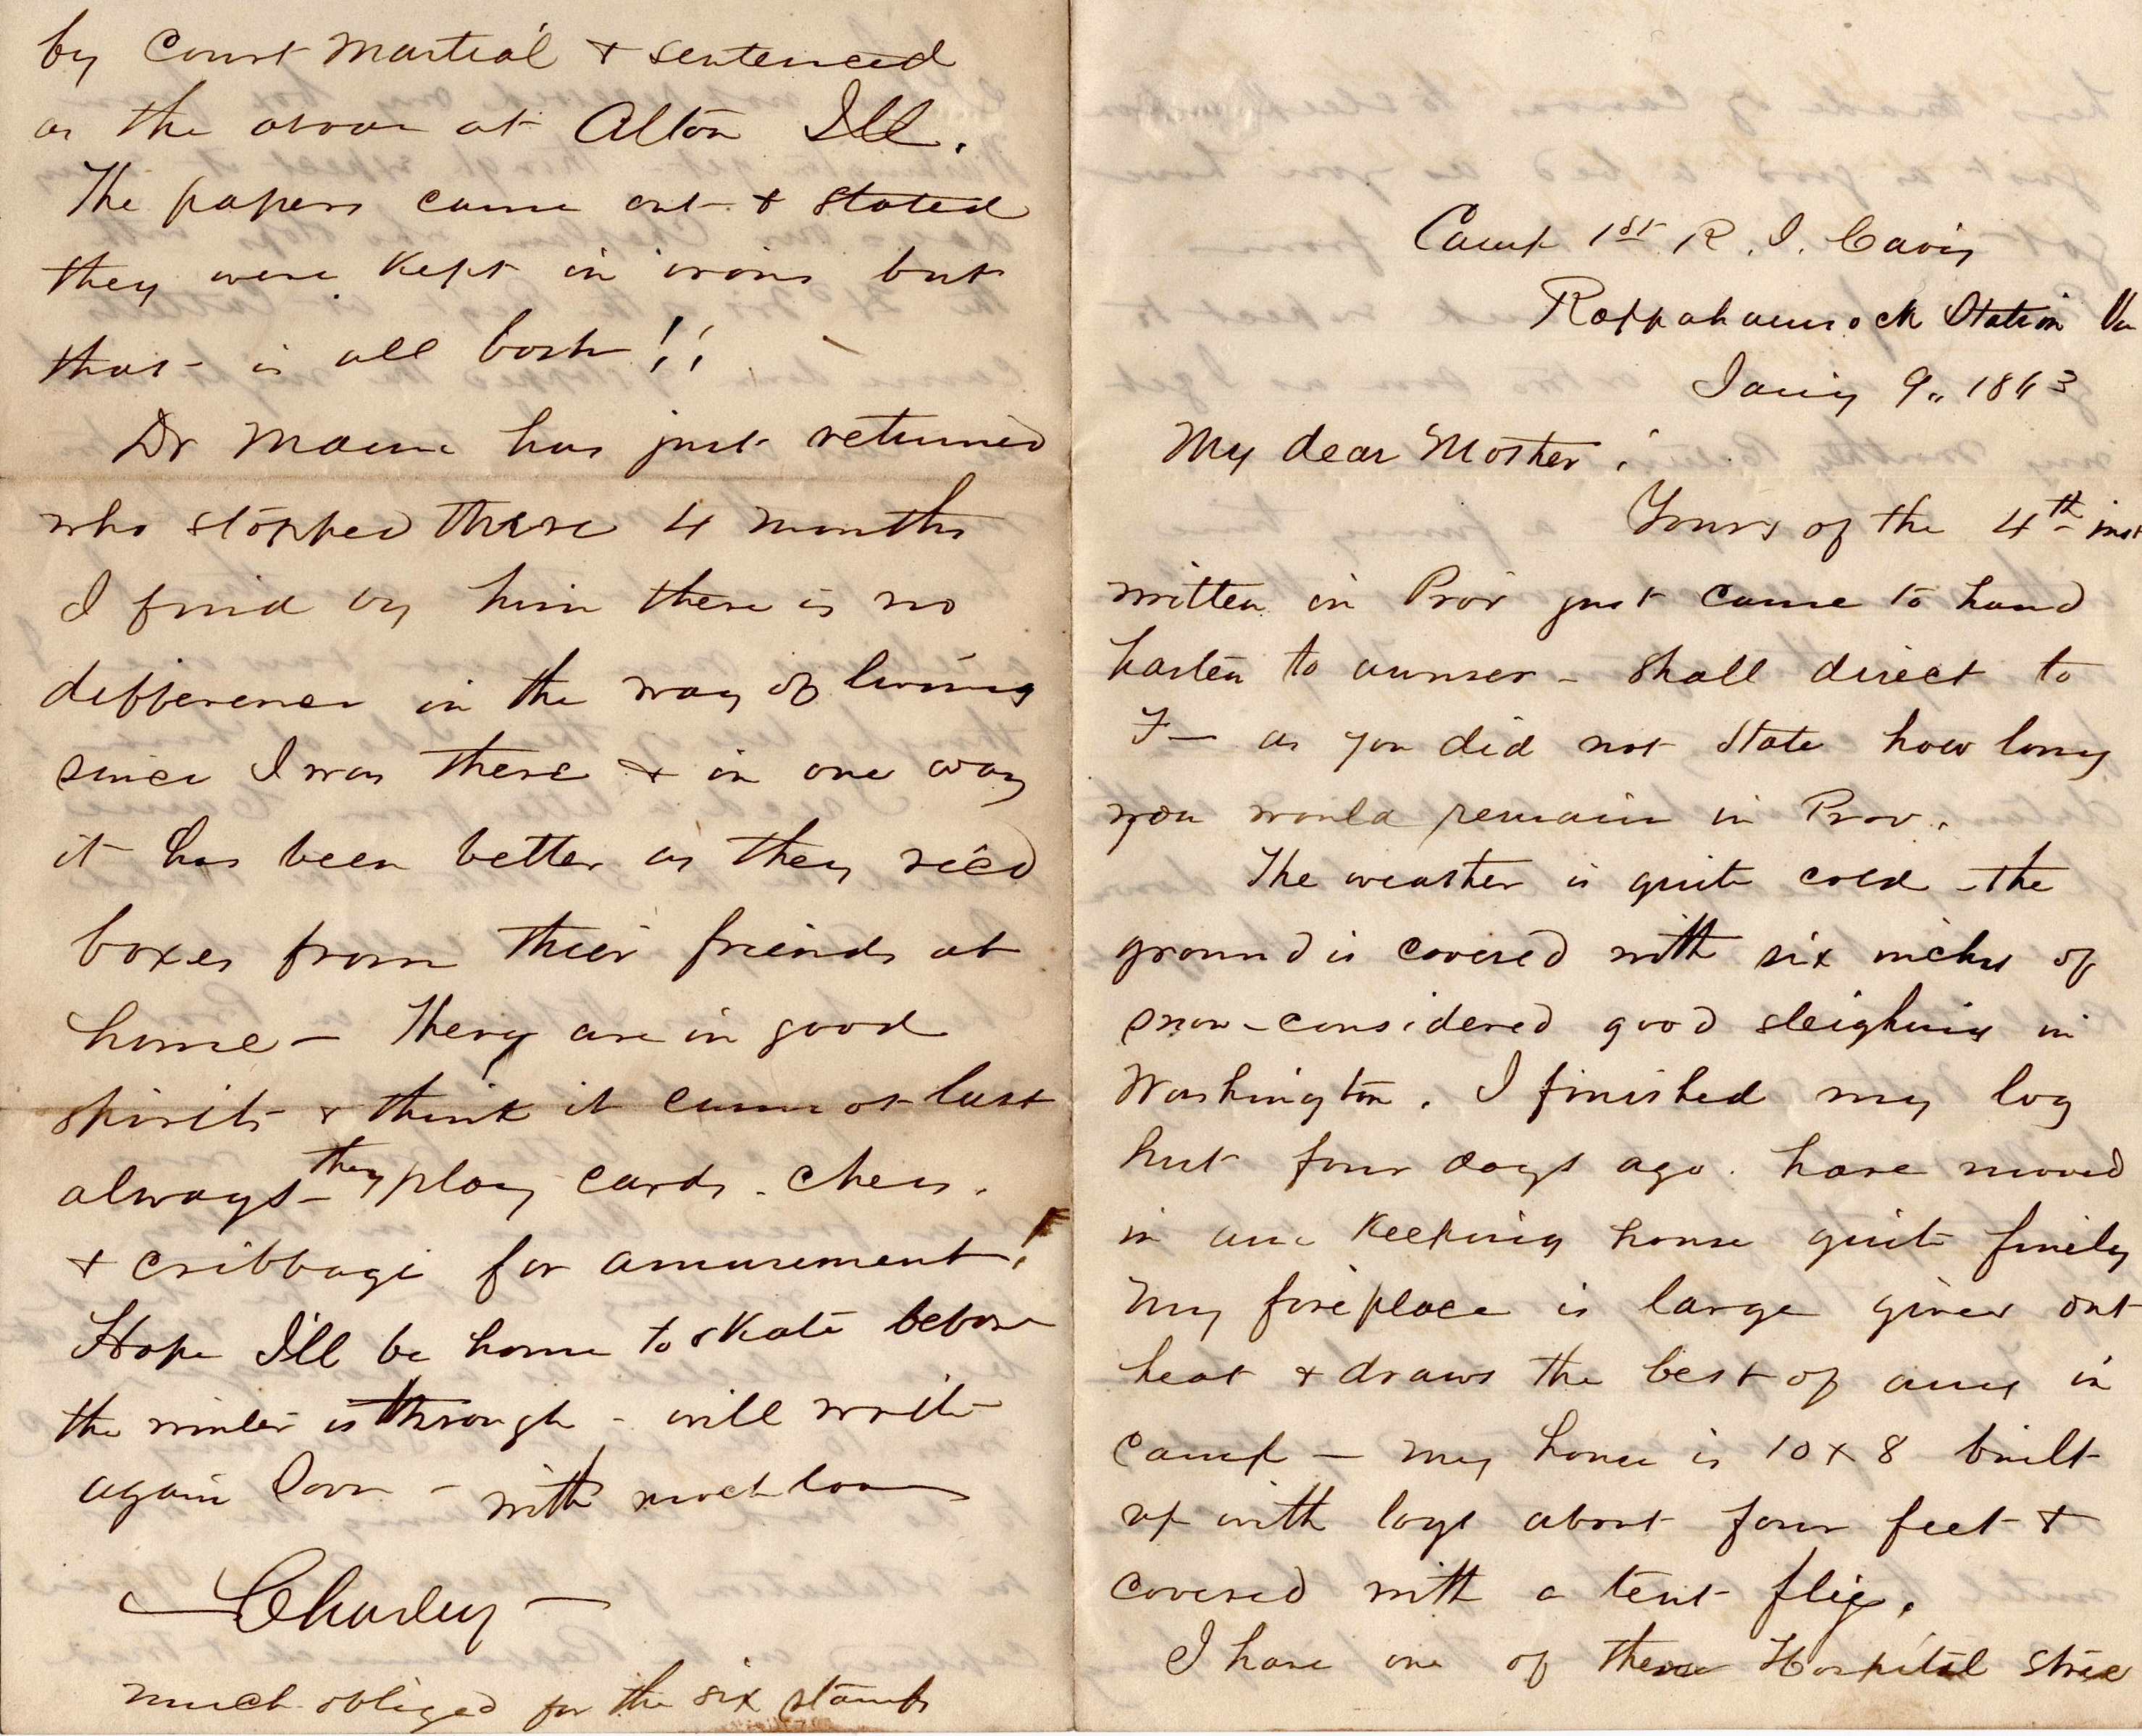 by Court Martial & sentenced
as the above at Alton Ill.
The papers came out & stated
they were kept in irons but
that is all bosh!!
Dr Mann has just returned
who stopped there 4 months
I find by him there is no
difference in the way of living
since I was there & in one way
it has been better as they rec'd
boxes from thier friends at
home — They are in good
spirits & think it cannot last
always — they play cards. chess.
& cribbage for amusement!
Hope I'll be home to skate before
the winter is through - will write
again soon - with much love
— Charley —
much obliged for the six stamps
Camp 1st R. I. Cavy
Rappahannock Station Va
Jany 9" 1863
My dear Mother:
Yours of the 4th inst
written in Prov just came to hand
hasten to answer - shall direct to
F— as you did not state how long
you would remain in Prov.
The weather is quite cold - the
ground is covered with six inches of
snow - considered good sleighing in
Washington. I finished my log
hut four days ago. have moved
in am keeping house quite finely
My fireplace is large gives out
heat & draws the best of any in
camp — my house is 10 x 8 built
up with logs about four feet &
covered with a tent fly.
I have one of these Hospital